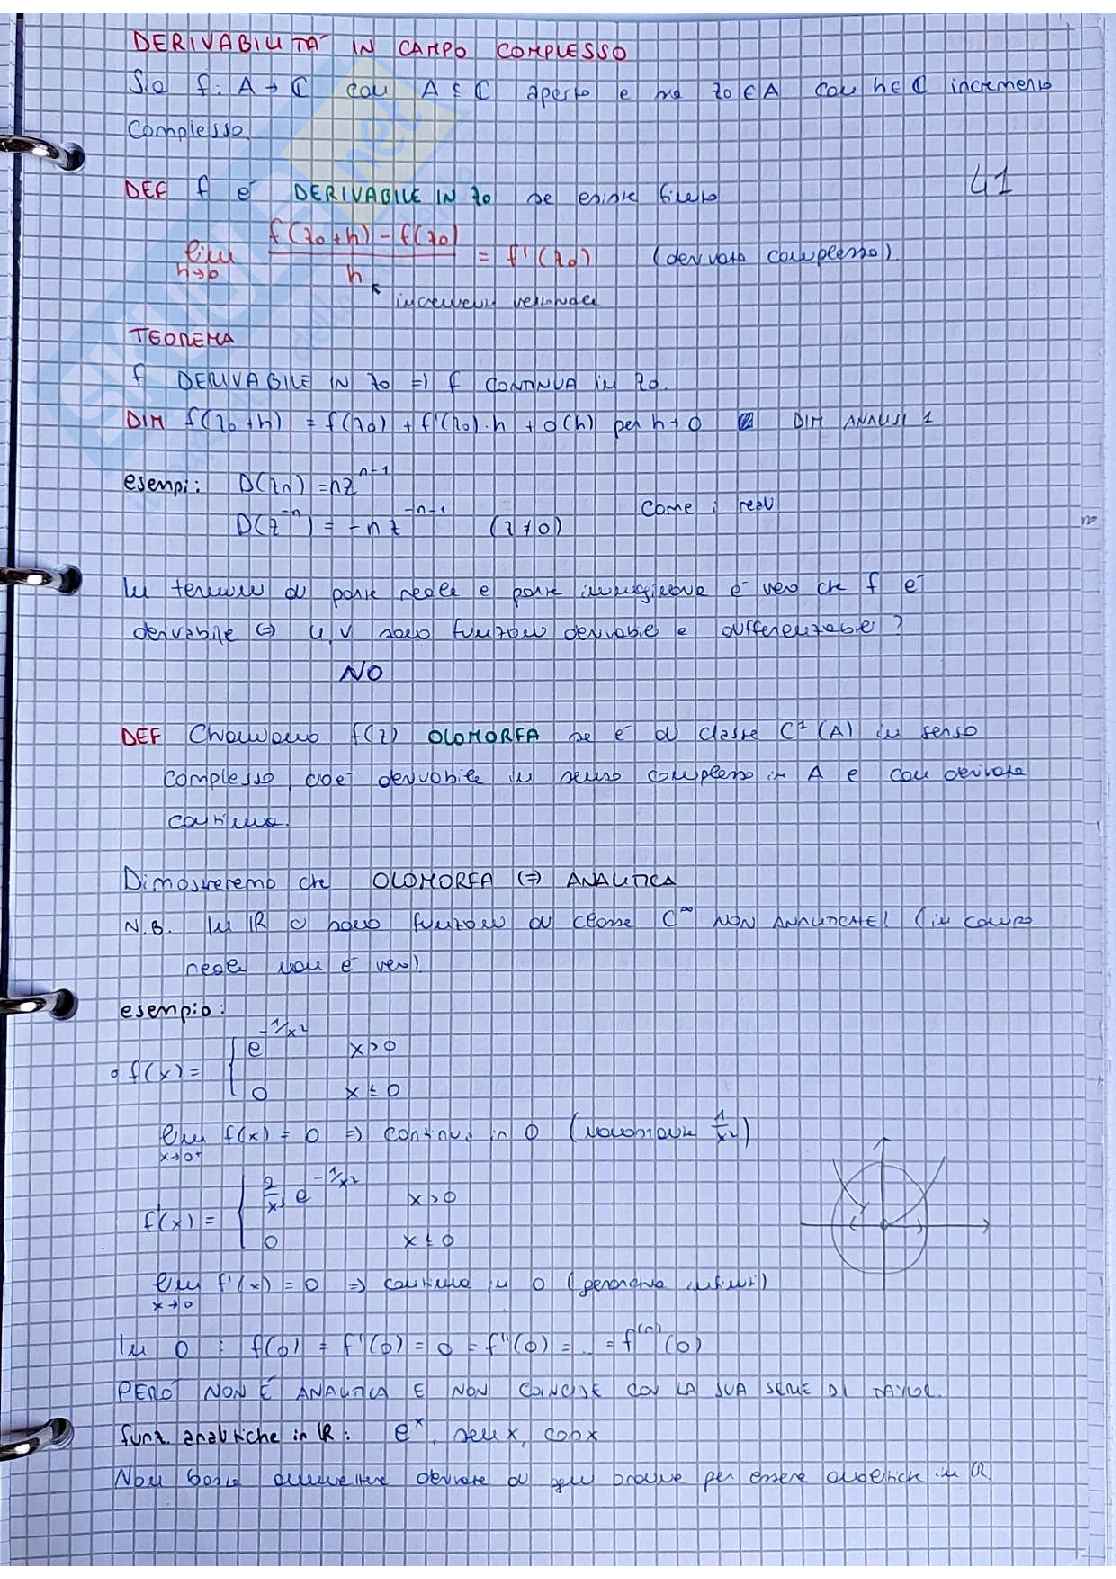 DERIVABILITÀ IN CAMPO COMPLESSO
Sia f: A → ℂ con A ⊆ ℂ aperto e sia z0 ∈ A con h ∈ ℂ incremento
complesso.
41
DEF f è DERIVABILE IN z0 se esiste finito
lim h→0 (f(z0+h) - f(z0))/h = f'(z0) (derivata complessa)
incremento
TEOREMA
f DERIVABILE IN z0 => f CONTINUA in z0.
DIM f(z0+h) = f(z0) + f'(z0)·h + o(h) per h→0 DIM ANALISI 1
esempi: D(zn) = nz^(n-1)
come i reali
D(z^-n) = -n z^(-n-1) (z≠0)
In termini di parte reale e parte immaginaria è vero che f è
derivabile <=> u, v sono funzioni derivabili e differenziabili?
NO
DEF Chiamiamo f(z) OLOMORFA se è di classe C^1 (A) in senso
complesso, cioè derivabile in senso complesso in A e con derivata
continua.
Dimostreremo che OLOMORFA <=> ANALITICA
N.B. In ℝ ci sono funzioni di classe C^∞ NON ANALITICHE! (in campo
reale non è vero).
esempio:
• f(x) = { e^(-1/x²) x>0
0 x≤0
lim x→0+ f(x) = 0 => continua in 0 (1/x²)
f'(x) = { 2/x³ e^(-1/x²) x>0
0 x≤0
lim x→0 f'(x) = 0 => continua in 0 (gerarchia infiniti)
In 0 : f(0) = f'(0) = 0 = f''(0) = ... = f^(n)(0)
PERÒ NON È ANALITICA E NON COINCIDE CON LA SUA SERIE DI TAYLOR.
funz. analitiche in ℝ: e^x, senx, cosx
Non basta ammettere derivate di ogni ordine per essere analitiche in ℝ